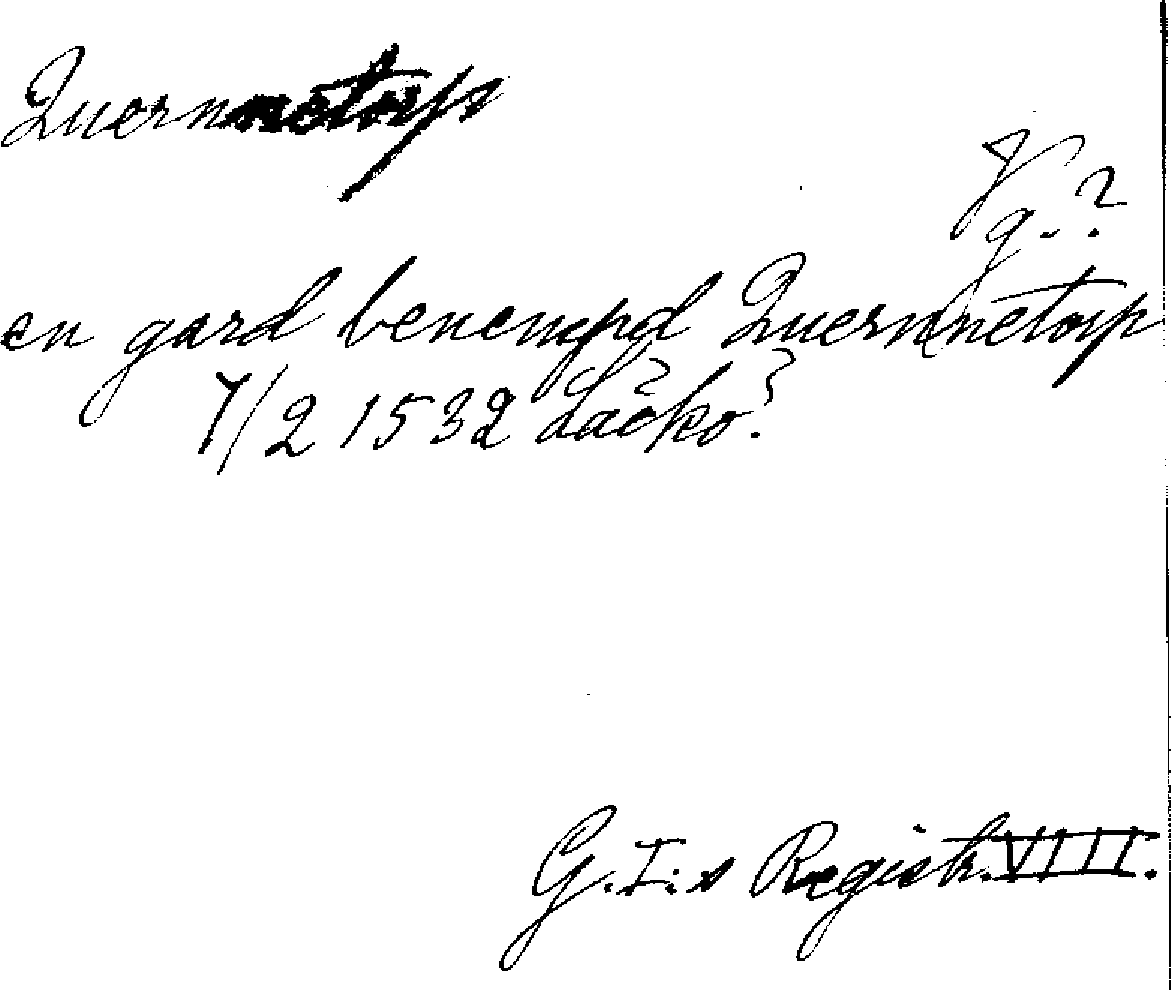 Quernnetorp
V
g. ?
en gard benempd Quernnetorp
7/2 1532 Läckö?
G. I:s Registr. VIII.